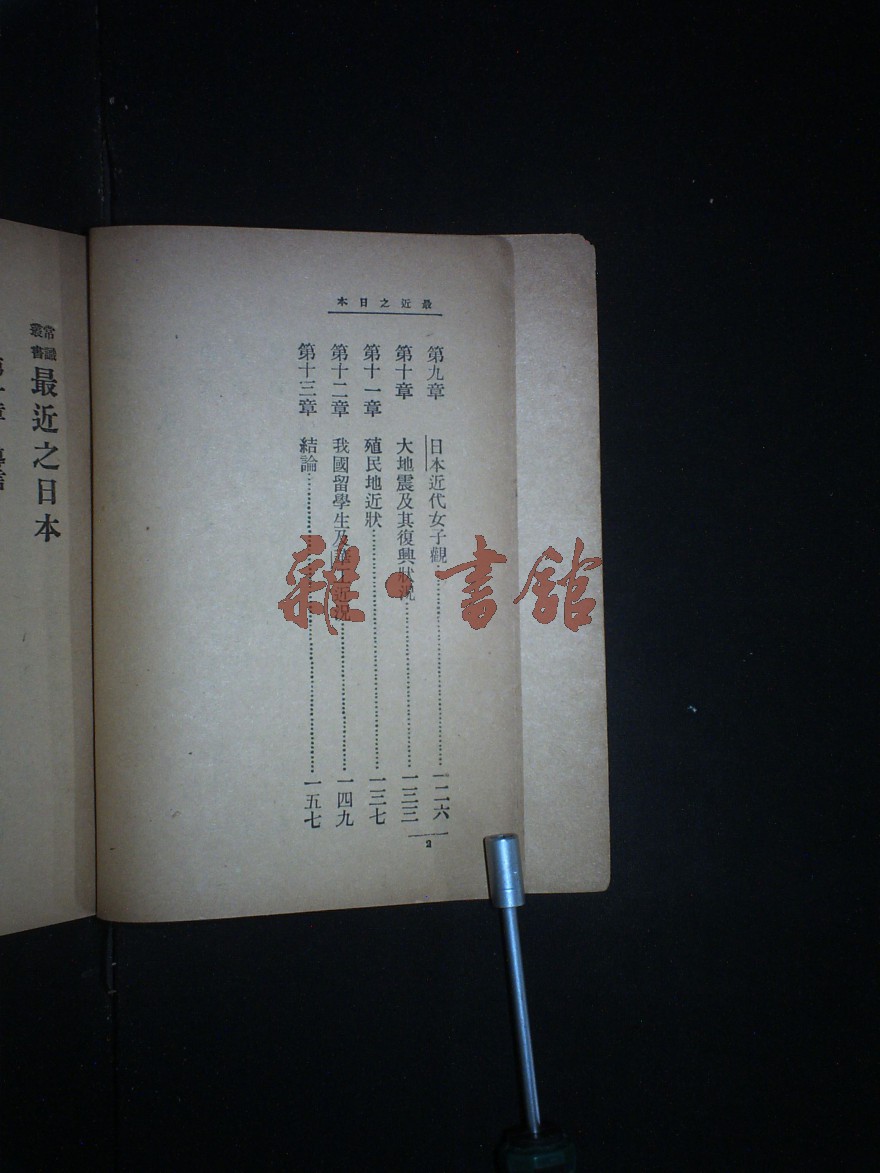 最近之日本
第九章 日本近代女子觀……一二六
第十章 大地震及其復興狀況……一三三
第十一章 殖民地近狀……一三七
第十二章 我國留學生及華工近況……一四九
第十三章 結論……一五七
2
常識叢書 最近之日本
雜·書館